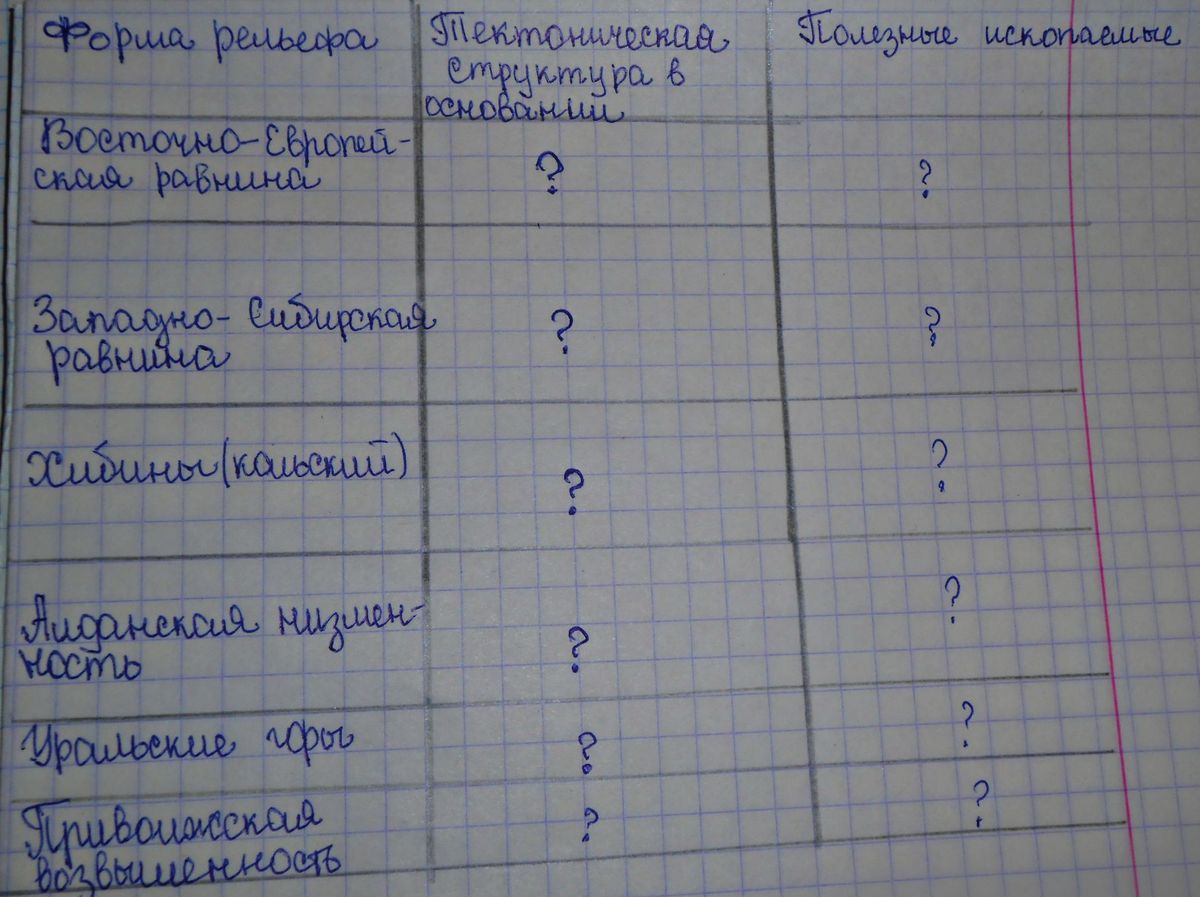 Форма рельефа
Тектоническая
структура в
основании
Полезные ископаемые
Восточно-Европей-
ская равнина
?
?
Западно-Сибирская
равнина
?
?
Хибины (кольский)
?
?
Алданская низмен-
ность
?
?
Уральские горы
?
?
Приволжская
возвышенность
?
?